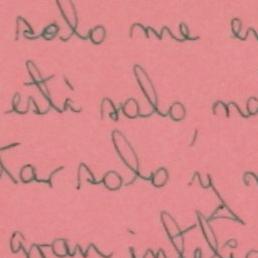 solo me en
está solo no
tar solo y n
gran intelig